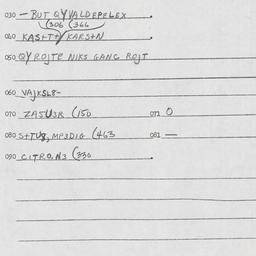 030 — BUT QYVALDEPELEX
(306 (366
040 KAST+T KARSTN
050 QYROJTE NIKS GANG ROJT
060 VAJKSL8-
070 ZASU3R (150 072 O
080 S+TU8, MP3DIG (463 082 —
090 CITRO.N3 (330